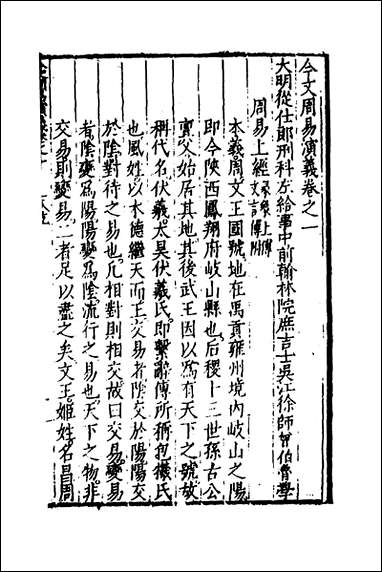 今文周易演義卷之一
大明從仕郎刑科左給事中前翰林院庶吉士吳江徐師曾伯魯學
周易上經
本義周文王國號地在禹貢雍州境內岐山之陽
即今陝西鳳翔府岐山縣也后稷十三世孫古公
亶父始居其地其後武王因以為有天下之號故
稱代名伏羲太昊伏羲氏即繫辭傳所稱包犧氏
也風姓以木德繼天而王交易者陰交於陽陽交
於陰對待之易也凡相對則相交故曰交易變易
者陰變為陽陽變為陰流行之易也天下之物非
交易則變易二者足以盡之矣文王姬姓名昌周